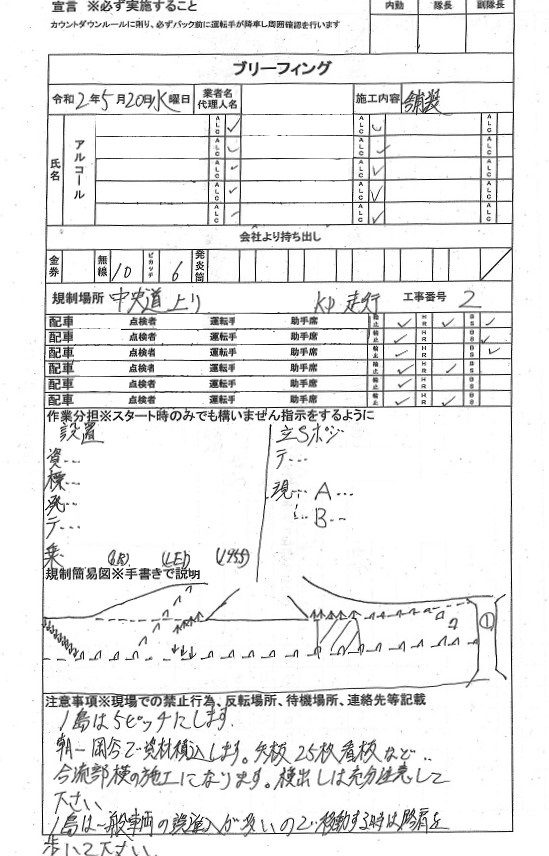 宣言 ※必ず実施すること
カウントダウンルールに則り、必ずバック前に運転手が降車し周囲確認を行います
内勤 隊長 副隊長
ブリーフィング
令和2年5月20日水曜日 業者名 代理人名 施工内容 舗装
氏名 アルコール ALC ALC ALC
ALC ALC ALC
ALC ALC ALC
ALC ALC ALC
ALC ALC ALC
会社より持ち出し
金券 無線 10 ピカッチ 6 発炎筒
規制場所 中央道上り KP 走行 工事番号 2
配車 点検者 運転手 助手席 輪止 HR BS
配車 点検者 運転手 助手席 輪止 HR BS
配車 点検者 運転手 助手席 輪止 HR BS
配車 点検者 運転手 助手席 輪止 HR BS
配車 点検者 運転手 助手席 輪止 HR BS
配車 点検者 運転手 助手席 輪止 HR BS
作業分担※スタート時のみでも構いません指示をするように
設置
資…
標…
発…
テ…
乗…
(LED)
立Sポジ
テ…
現… A…
B…
規制簡易図※手書きで説明
①
注意事項※現場での禁止行為、反転場所、待機場所、連絡先等記載
1島は5ピッチにします
朝一岡谷で資材積込します。矢板25枚看板など..
合流部横の施工になります。検出しは充分注意して
下さい
1島は一般車両の誤進入が多いので移動する時は路肩を
歩いて下さい